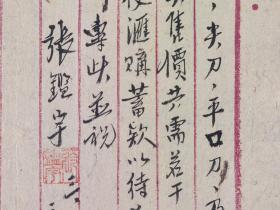 、尖刀、平口刀、
售價共需若干
匯購蓄欵以待
專此並祝
張鑑宇